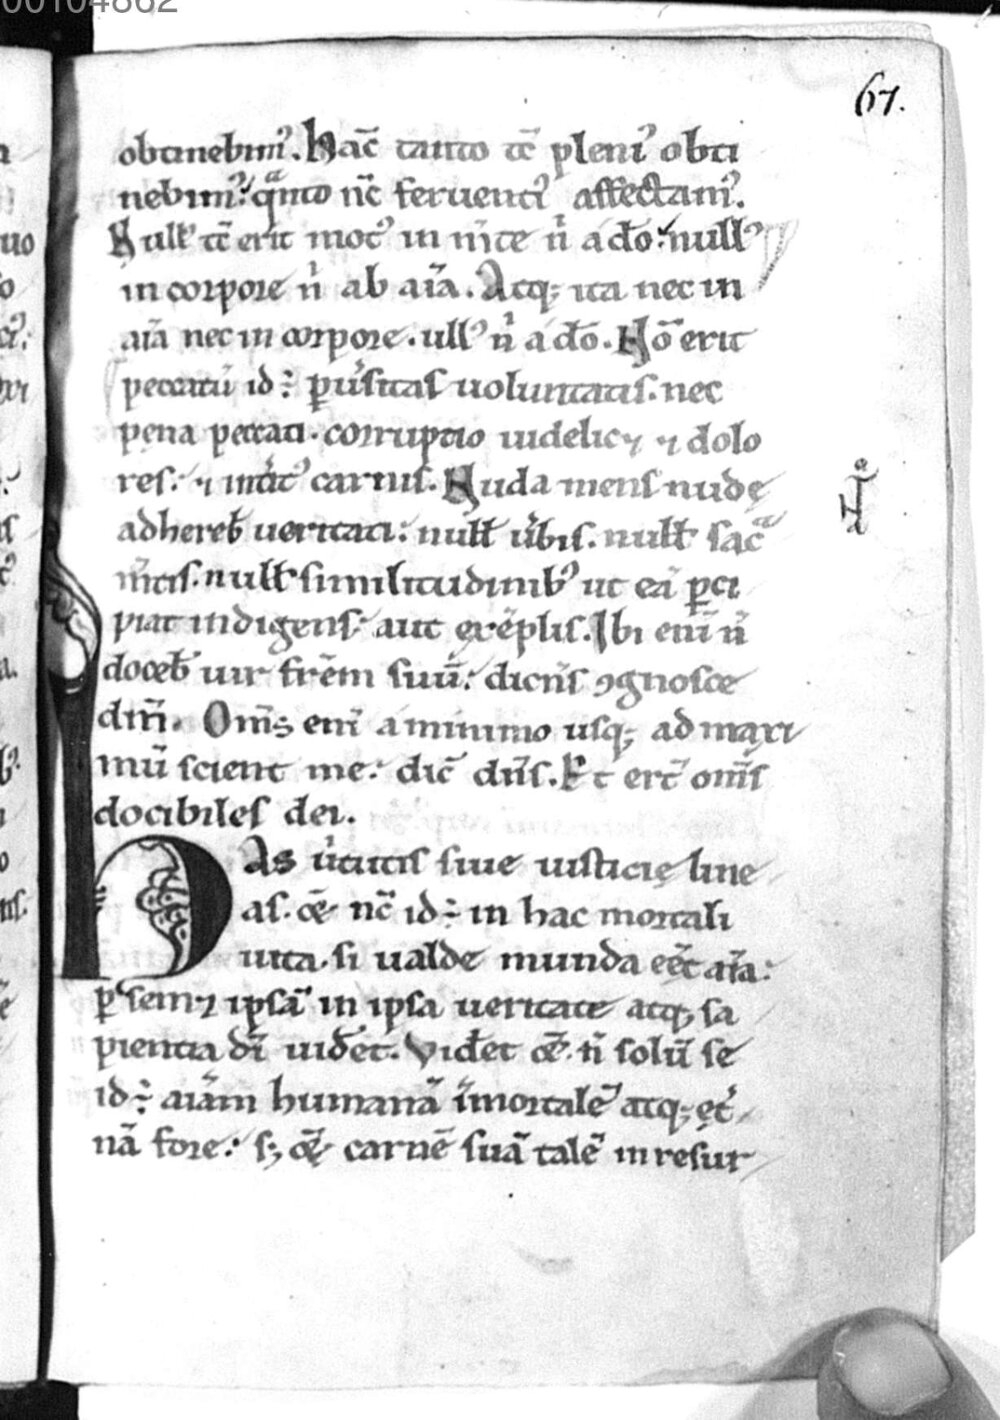 00104862
67.
obtinebim᷒. Hac̄ tanto tc̄ pleni᷒ obti
nebim᷒. qͣnto nc̄ feruenti᷒ affectam᷒.
Null᷒ tc̄ erit mot᷒ in m̄te n̍ a do. null᷒
in corpore n̍ ab aīa. Atq; ita nec in
aīa nec in corpore. ull᷒ n̍ a dō. Nō erit
peccatū id ÷ puͥsitas uoluntatis. nec
pena peccati. corruptio uidelic⁊ ⁊ dolo
res. ⁊ int̍it᷒ carnis. Nuda mens nudę
adhereb̄ ueritati. null̄ u̍bis. null̄ sacͣ
m̄tis. null̄ similitudinib᷒ ut eā ꝑci
piat indigens. aut exēplis. Ibi enī n̄
doceb̄ uir frēm suū. dicn̄s ꝯgnosce
dn̄m. Om̄s enī a minimo usq; ad maxi
mū scient me. dic̄ dn̄s. Et ert̄ om̄s
docibiles dei.
Has u̍tutis siue iusticię line
as. &̄ nc̄ id ÷ in hac mortali
uita. si ualde munda eēt aīa.
ꝑ sem⁊ ipsā in ipsa ueritate atq; sa
pientia dī uidet. Videt &̄. n̄ solū se
id ÷ aiām humanā īmortalē atq; ęt̍
nā fore. s; &̄ carnē suā talē in resur